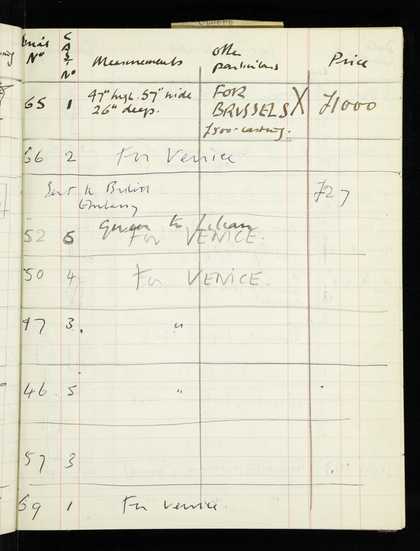 Serial C other
Nº A Measurements particulars Price
S
T
Nº
65 1 47" high. 57" wide FOR X £1000
26" deep. BRUSSELS
£500 - casting.
66 2 For Venice
Sent to British £27
Embassy
given to
52 5 For VENICE.
50 4 For VENICE.
47 3. "
46 5 "
57 3
69 1 For Venice.